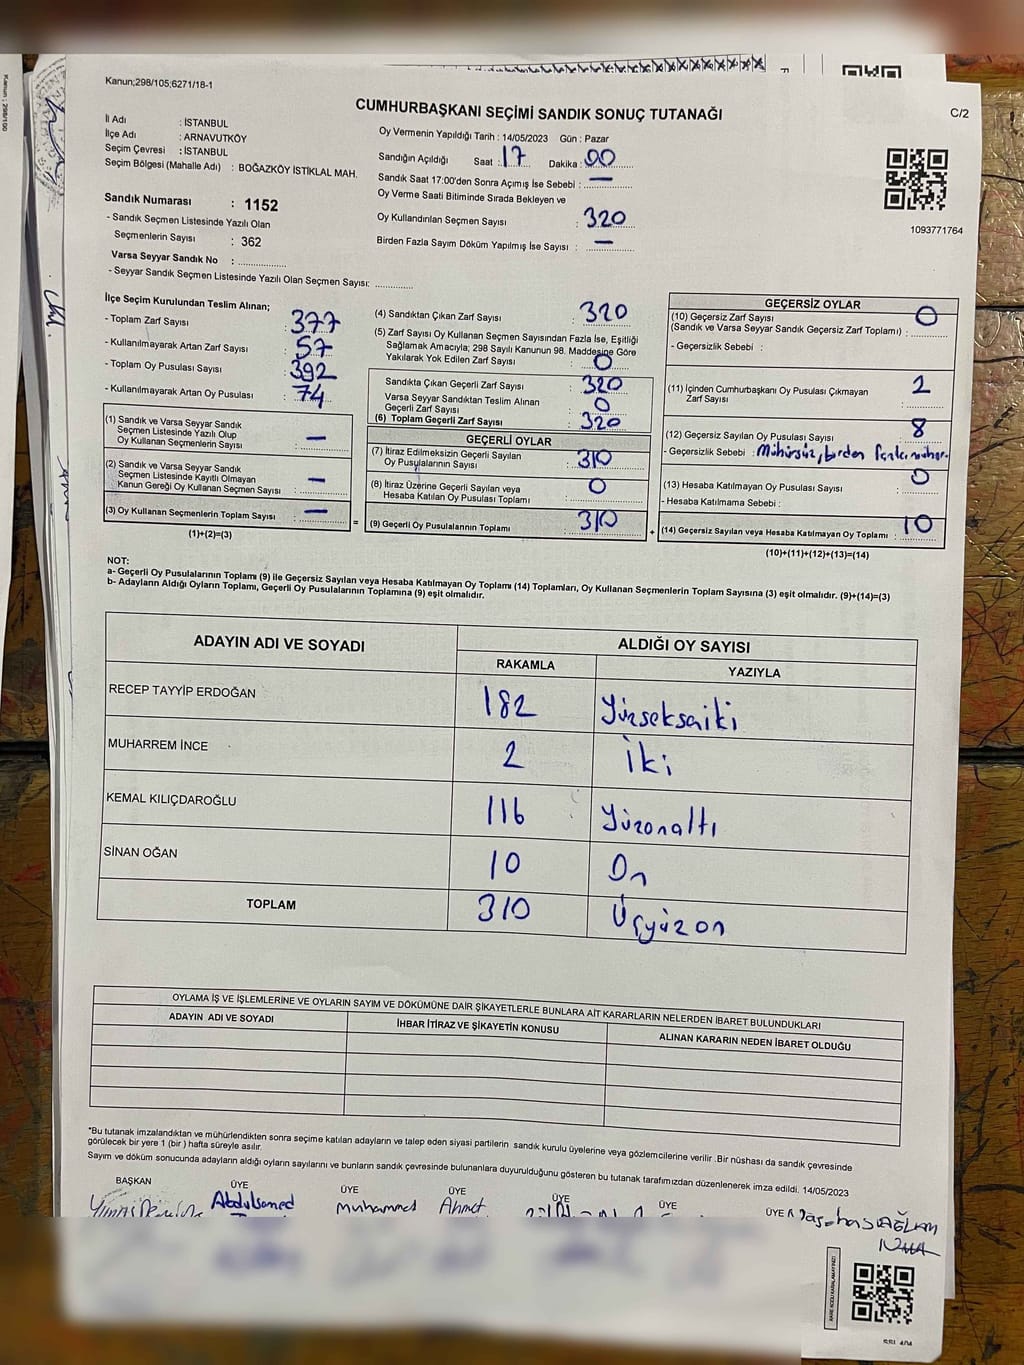 Kanun;298/105;6271/18-1
CUMHURBAŞKANI SEÇİMİ SANDIK SONUÇ TUTANAĞI
C/2
İl Adı : İSTANBUL
İlçe Adı : ARNAVUTKÖY
Seçim Çevresi : İSTANBUL
Seçim Bölgesi (Mahalle Adı) : BOĞAZKÖY İSTİKLAL MAH.
Sandık Numarası : 1152
- Sandık Seçmen Listesinde Yazılı Olan
Seçmenlerin Sayısı : 362
Varsa Seyyar Sandık No : ..............
- Seyyar Sandık Seçmen Listesinde Yazılı Olan Seçmen Sayısı: ............
Oy Vermenin Yapıldığı Tarih : 14/05/2023 Gün : Pazar
Sandığın Açıldığı Saat : 17 Dakika : 00
Sandık Saat 17:00'den Sonra Açımış İse Sebebi : —
Oy Verme Saati Bitiminde Sırada Bekleyen ve
Oy Kullandırılan Seçmen Sayısı : 320
Birden Fazla Sayım Döküm Yapılmış İse Sayısı : —
1093771764
İlçe Seçim Kurulundan Teslim Alınan;
- Toplam Zarf Sayısı : 377
- Kullanılmayarak Artan Zarf Sayısı : 57
- Toplam Oy Pusulası Sayısı : 392
- Kullanılmayarak Artan Oy Pusulası : 74
(1) Sandık ve Varsa Seyyar Sandık
Seçmen Listesinde Yazılı Olup
Oy Kullanan Seçmenlerin Sayısı : —
(2) Sandık ve Varsa Seyyar Sandık
Seçmen Listesinde Kayıtlı Olmayan
Kanun Gereği Oy Kullanan Seçmen Sayısı : —
(3) Oy Kullanan Seçmenlerin Toplam Sayısı : —
(1)+(2)=(3)
=
(4) Sandıktan Çıkan Zarf Sayısı : 320
(5) Zarf Sayısı Oy Kullanan Seçmen Sayısından Fazla İse, Eşitliği
Sağlamak Amacıyla; 298 Sayılı Kanunun 98. Maddesine Göre
Yakılarak Yok Edilen Zarf Sayısı : 0
Sandıkta Çıkan Geçerli Zarf Sayısı : 320
Varsa Seyyar Sandıktan Teslim Alınan
Geçerli Zarf Sayısı : 0
(6) Toplam Geçerli Zarf Sayısı : 320
GEÇERLİ OYLAR
(7) İtiraz Edilmeksizin Geçerli Sayılan
Oy Pusulalarının Sayısı : 310
(8) İtiraz Üzerine Geçerli Sayılan veya
Hesaba Katılan Oy Pusulası Toplamı : 0
(9) Geçerli Oy Pusulalarının Toplamı : 310
+
GEÇERSİZ OYLAR
(10) Geçersiz Zarf Sayısı
(Sandık ve Varsa Seyyar Sandık Geçersiz Zarf Toplamı) : 0
- Geçersizlik Sebebi :
(11) İçinden Cumhurbaşkanı Oy Pusulası Çıkmayan
Zarf Sayısı : 2
(12) Geçersiz Sayılan Oy Pusulası Sayısı : 8
- Geçersizlik Sebebi : Mühürsüz, birden fazla mühür.
(13) Hesaba Katılmayan Oy Pusulası Sayısı : 0
- Hesaba Katılmama Sebebi :
(14) Geçersiz Sayılan veya Hesaba Katılmayan Oy Toplamı : 10
(10)+(11)+(12)+(13)=(14)
NOT:
a- Geçerli Oy Pusulalarının Toplamı (9) ile Geçersiz Sayılan veya Hesaba Katılmayan Oy Toplamı (14) Toplamları, Oy Kullanan Seçmenlerin Toplam Sayısına (3) eşit olmalıdır. (9)+(14)=(3)
b- Adayların Aldığı Oyların Toplamı, Geçerli Oy Pusulalarının Toplamına (9) eşit olmalıdır.
ADAYIN ADI VE SOYADI ALDIĞI OY SAYISI
RAKAMLA YAZIYLA
RECEP TAYYİP ERDOĞAN 182 Yüzseksaiki
MUHARREM İNCE 2 İki
KEMAL KILIÇDAROĞLU 116 Yüzonaltı
SİNAN OĞAN 10 On
TOPLAM 310 Üçyüzon
OYLAMA İŞ VE İŞLEMLERİNE VE OYLARIN SAYIM VE DÖKÜMÜNE DAİR ŞİKAYETLERLE BUNLARA AİT KARARLARIN NELERDEN İBARET BULUNDUKLARI
ADAYIN ADI VE SOYADI İHBAR İTİRAZ VE ŞİKAYETİN KONUSU ALINAN KARARIN NEDEN İBARET OLDUĞU
*Bu tutanak imzalandıktan ve mühürlendikten sonra seçime katılan adayların ve talep eden siyasi partilerin sandık kurulu üyelerine veya gözlemcilerine verilir .Bir nüshası da sandık çevresinde
görülecek bir yere 1 (bir ) hafta süreyle asılır.
Sayım ve döküm sonucunda adayların aldığı oyların sayılarını ve bunların sandık çevresinde bulunanlara duyurulduğunu gösteren bu tutanak tarafımızdan düzenlenerek imza edildi. 14/05/2023
BAŞKAN ÜYE ÜYE ÜYE ÜYE ÜYE ÜYE
Abdulsamed Muhammed Ahmet SAĞLAM